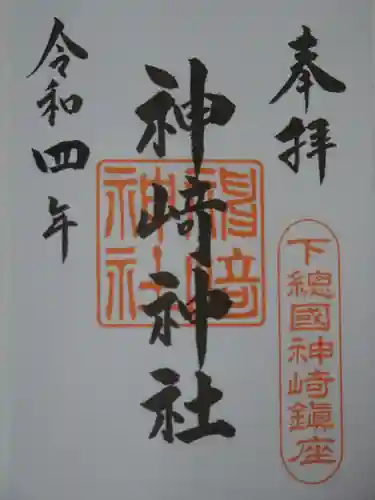 奉拝
下總國神崎鎭座
神崎神社
神崎神社
令和四年